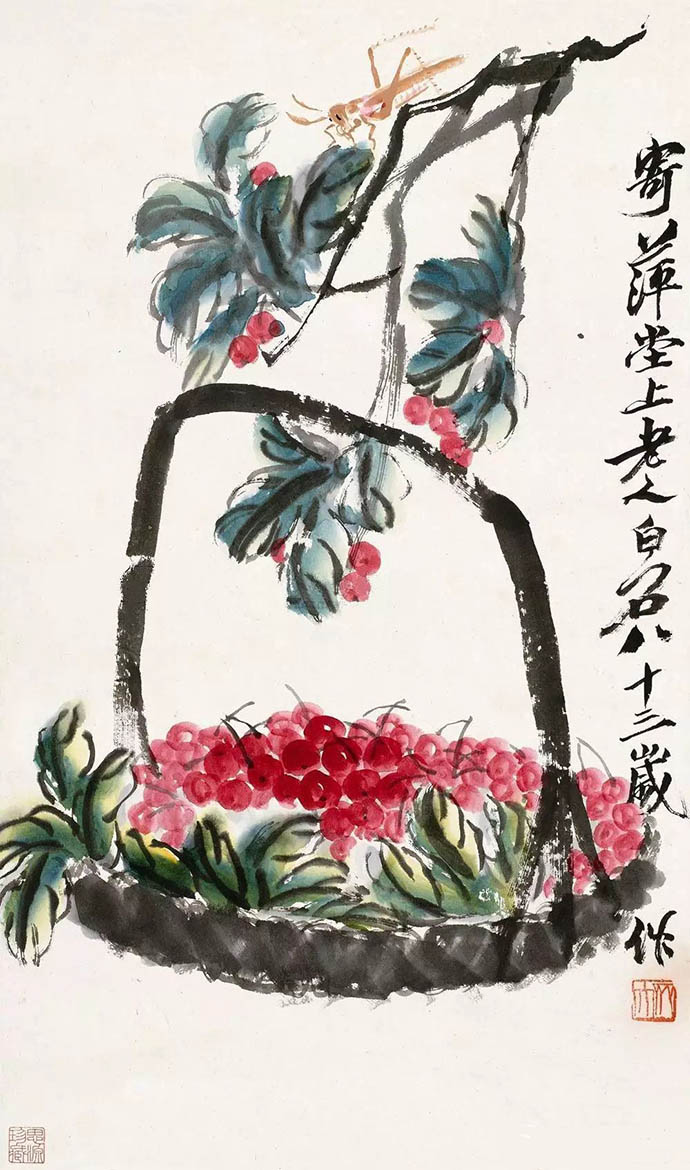 寄萍堂上老人白石八十三歲作